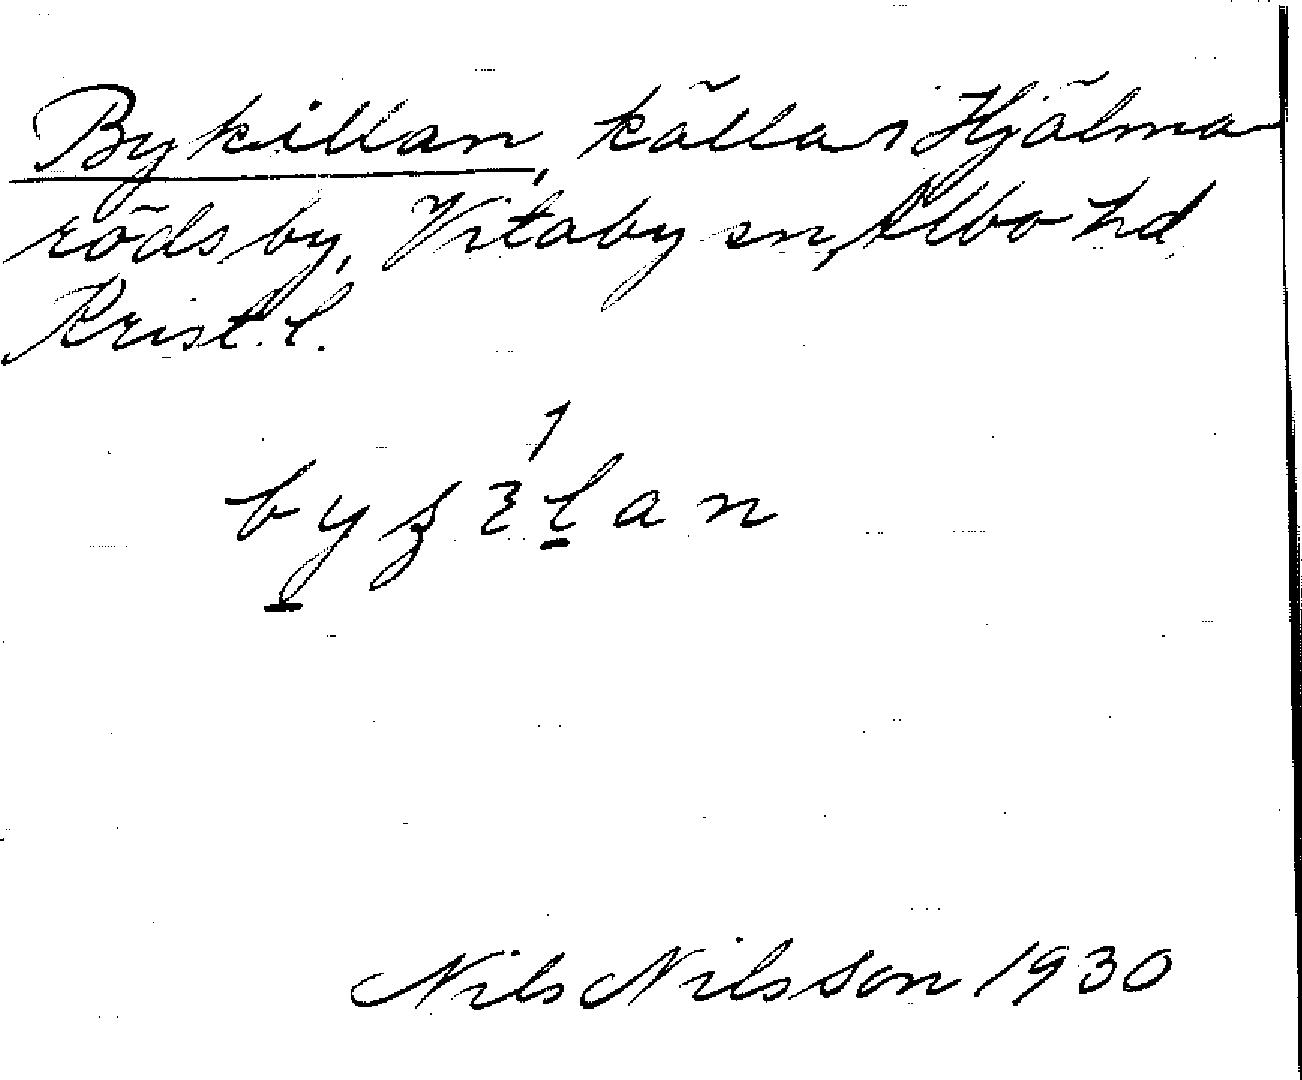 Bykillan, källa i Hjälma
röds by, Vitaby sn, Albo hd
Krist. l.
Nils Nilsson 1930